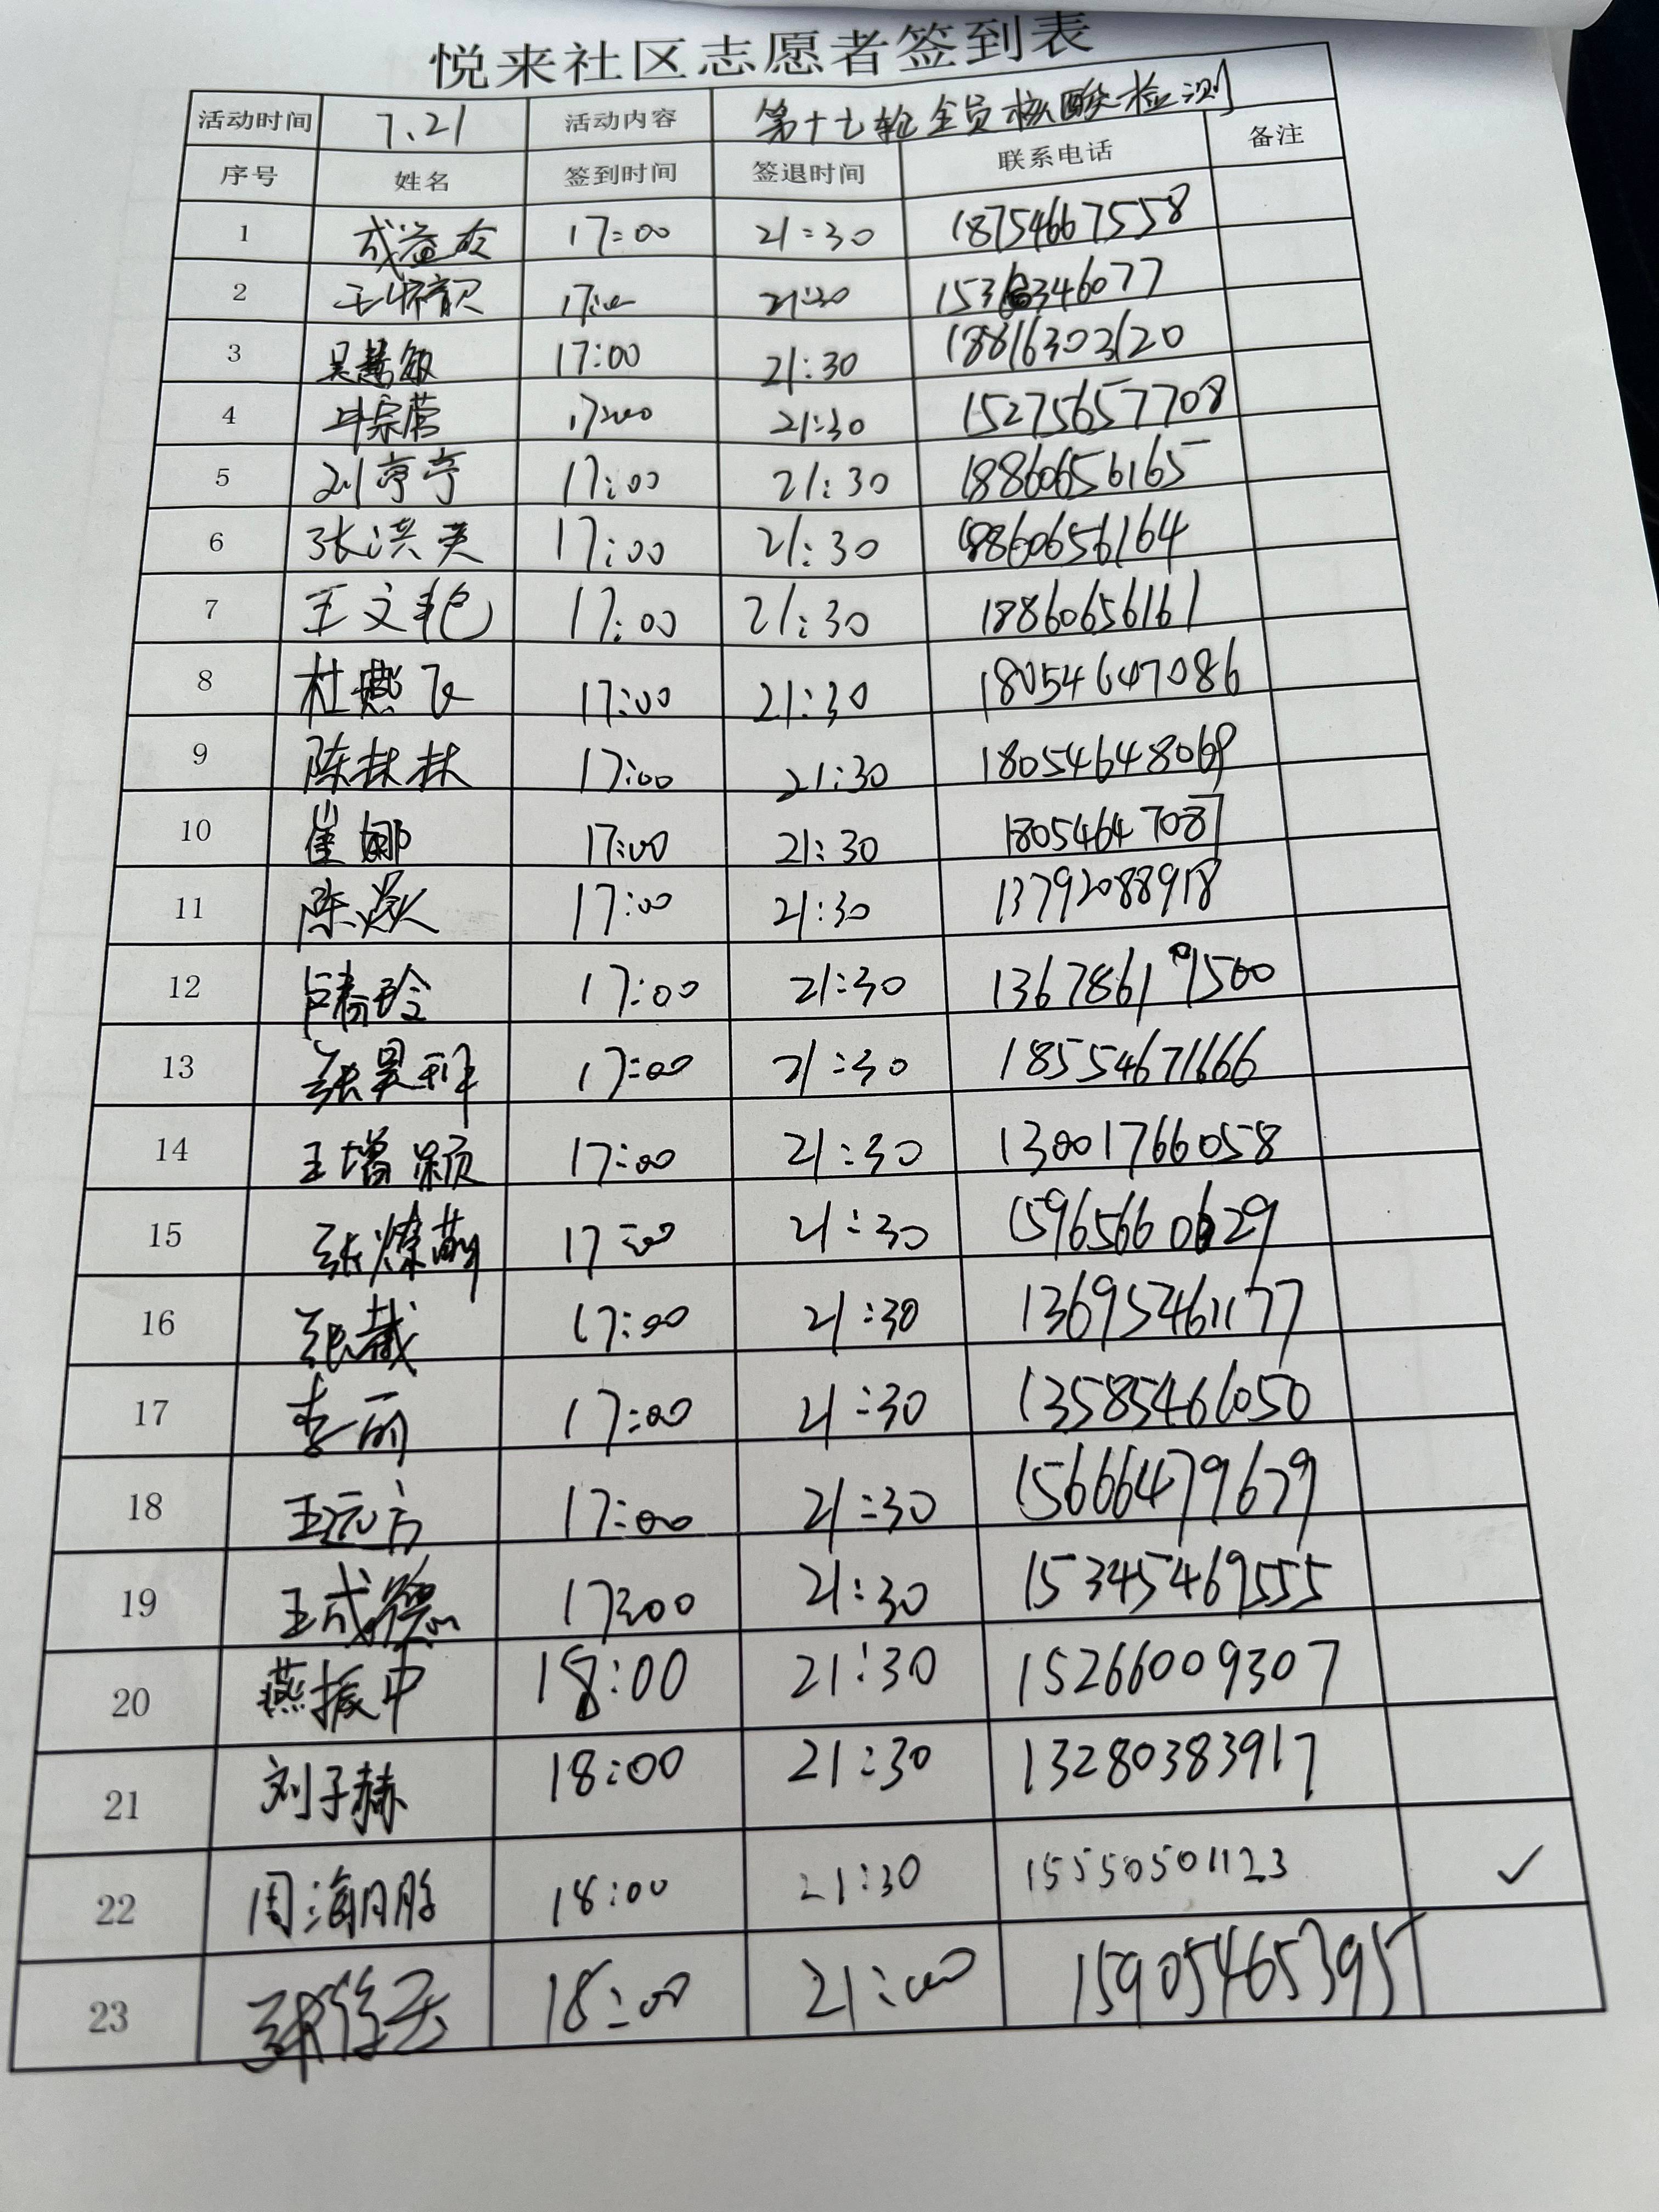 悦来社区志愿者签到表
活动时间 7.21 活动内容 第十七轮全员核酸检测
序号 姓名 签到时间 签退时间 联系电话 备注
1 成益 17:00 21:30 18754667558
2 王 17:00 21:30
3 吴慧敏 17:00 21:30 18816303120
4 宗营 17:00 21:30 15275657708
5 刘亭亭 17:00 21:30 18860656165
6 张洪英 17:00 21:30 18860656164
7 王文艳 17:00 21:30 18860656161
8 杜燕飞 17:00 21:30 18054647086
9 陈林林 17:00 21:30 18054648069
10 崔娜 17:00 21:30 18054647087
11 陈焱 17:00 21:30 13792088918
12 玲 17:00 21:30
13 张昊 17:00 21:30 18554671666
14 王增颖 17:00 21:30 13001766058
15 张燎 17:00 21:30 15965660629
16 张裁 17:00 21:30 13695461177
17 李丽 17:00 21:30 13585461050
18 王远方 17:00 21:30 15666479679
19 王成德 17:00 21:30 15345469555
20 燕振中 18:00 21:30 15266009307
21 刘子赫 18:00 21:30 13280383917
22 周海鹏 18:00 21:30 15550501123 ✓
23 18:00 21:00 15905465395